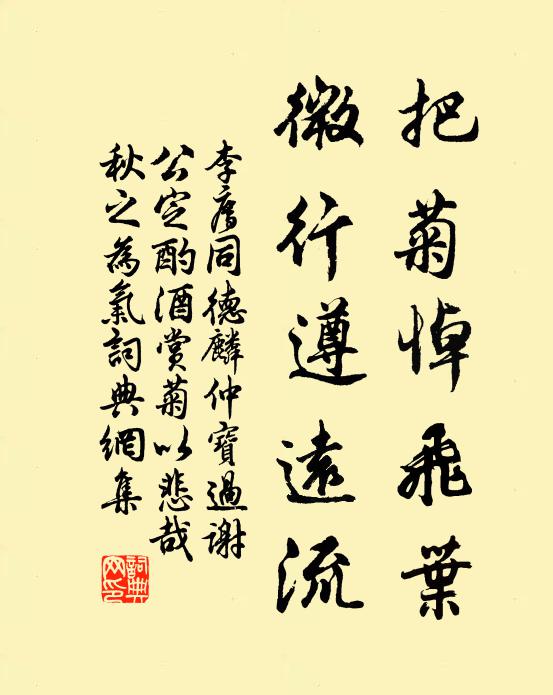 把菊悼飛葉
微行遵遠流
李廌同德麟仲寶過謝
公定酌酒賞菊以悲哉
秋之為氣詞典網集
詞典
网印